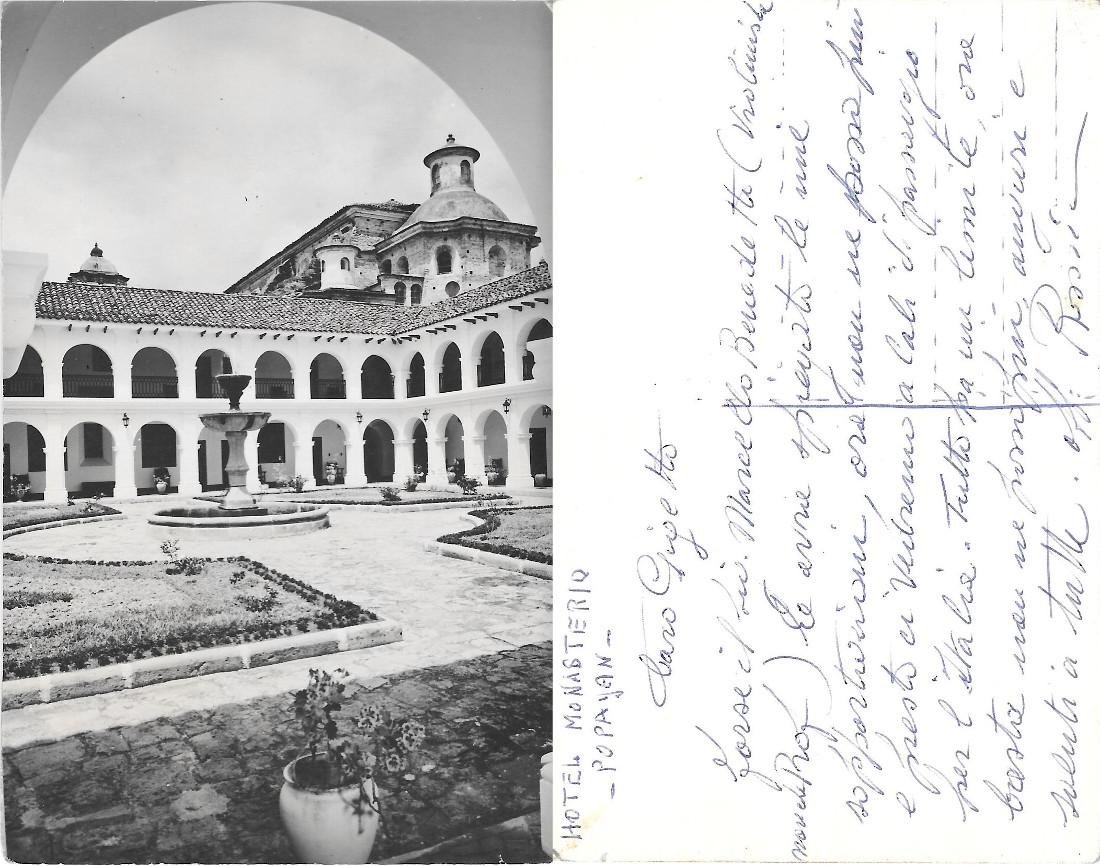 HOTEL MONASTERIO
- POPAYAN -
Caro Gigetto
Forse il Sig. Marcello Benedetti (Violinista
Prof) Le avrie spiegato le mie
opportunioni, ora non ne posso più
e presto ci vedremo a Cali il passaggio
per l'Italia. Tutto ha un limite, ora
basta non ne posso più, auguri e
saluti a tutti. Rossi